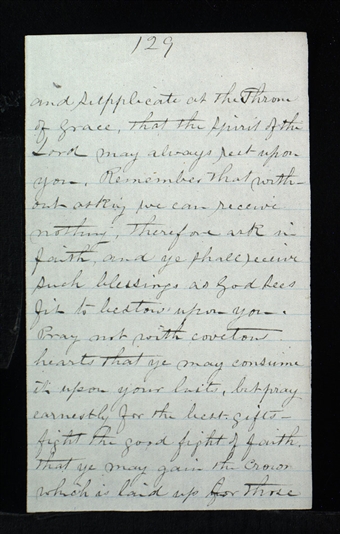 129
and supplicate at the Throne
of Grace, that the Spirit of the
Lord may always rest upon
you. Remember that with-
out asking we can receive
nothing, therefore ask in
faith, and ye shall receive
such blessings as God sees
fit to bestow upon you.
Pray not with covetous
hearts that ye may consume
it upon your lusts, but pray
earnestly for the best gifts-
fight the good fight of faith,
that ye may gain the crown
which is laid up for those